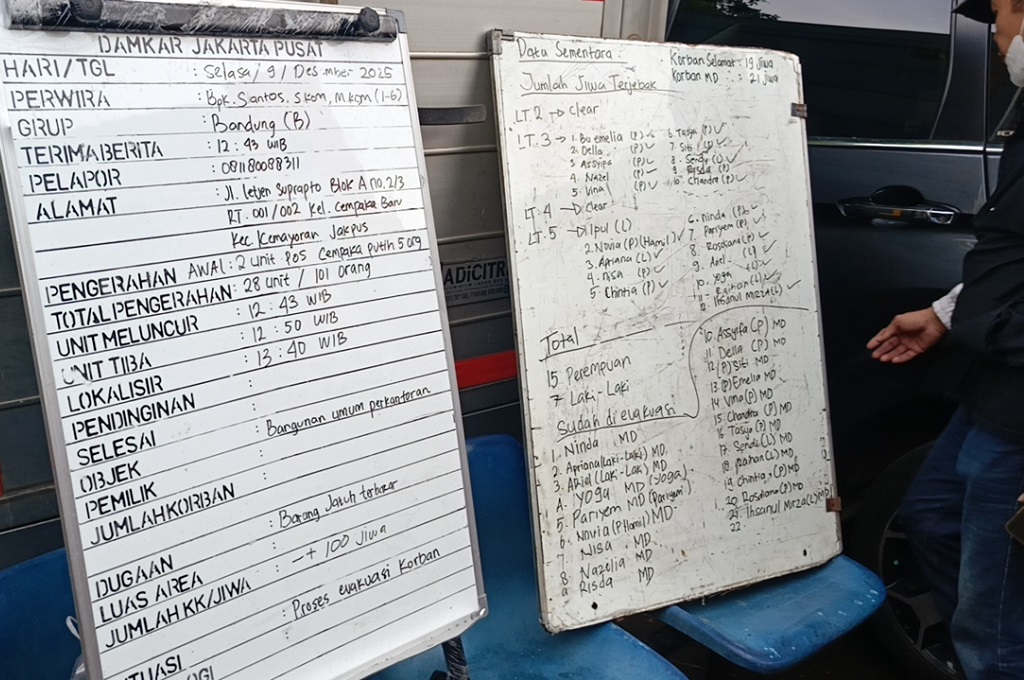 DAMKAR JAKARTA PUSAT
HARI/TGL : Selasa / 9 / Desember 2025
PERWIRA : Bpk. Santos. S.Kom, M.Kom (1-6)
GRUP : Bandung (B)
TERIMA BERITA : 12 : 43 WIB
PELAPOR : 081180088311
ALAMAT : Jl. Letjen Suprapto Blok A no. 2/3
RT. 001/002 Kel. Cempaka Baru
Kec Kemayoran Jakpus
PENGERAHAN AWAL : 2 unit Pos Cempaka putih 5 org
TOTAL PENGERAHAN : 28 unit / 101 orang
UNIT MELUNCUR : 12 : 43 WIB
UNIT TIBA : 12 : 50 WIB
LOKALISIR : 13 : 40 WIB
PENDINGINAN :
SELESAI :
OBJEK : Bangunan umum perkantoran
PEMILIK :
JUMLAH KORBAN :
DUGAAN : Barang Jatuh terbakar
LUAS AREA :
JUMLAH KK/JIWA : -+ 100 Jiwa
: Proses evakuasi Korban
Data Sementara :
Korban Selamat : 19 Jiwa
Korban MD : 21 Jiwa
Jumlah Jiwa Terjebak
LT. 2 → Clear
LT. 3 → 1. Bu emelia (P) ✓
2. Della (P) ✓
3. Assyifa (P) ✓
4. Nazel (P) ✓
5. Vina (P) ✓
6. Tasya (P) ✓
7. Siti (P) ✓
8. Sendy (L) ✓
9. Risda ✓
10. Chandra (P) ✓
LT. 4 → Clear
LT. 5 → 1. Ipul (L)
2. Novia (P) (Hamil) ✓
3. Apriana (L) ✓
4. nisa (P) ✓
5. Chintia (P) ✓
6. ninda (P) ✓
7. Pariyem (P) ✓
8. Rosdiana (P) ✓
9. Ariel (L) ✓
10. Yoga ✓
11. (L) ✓
12. Ihsanul Mirza (L) ✓
Total
15 Perempuan
7 Laki-Laki
Sudah di evakuasi
1. Ninda MD
2. Apriana (Laki-Laki) MD
3. Ariel (Laki-Laki) MD
4. Yoga MD (Yoga)
5. Pariyem MD (Pariyem)
6. Novia (P Hamil) MD
7 Nisa MD
8 Nazelia MD
9 Risda MD
10. Assyifa (P) MD
11. Della (P) MD
12 (P) Siti MD
13 (P) Emelia MD
14 Vina (P) MD
15 Chandra (P) MD
16 Tasya (P) MD
17. Sendi (L) MD
18. (L) MD
19. Chintia (P) MD
20 Rosdiana (P) MD
21. Ihsanul Mirza (L) MD
22